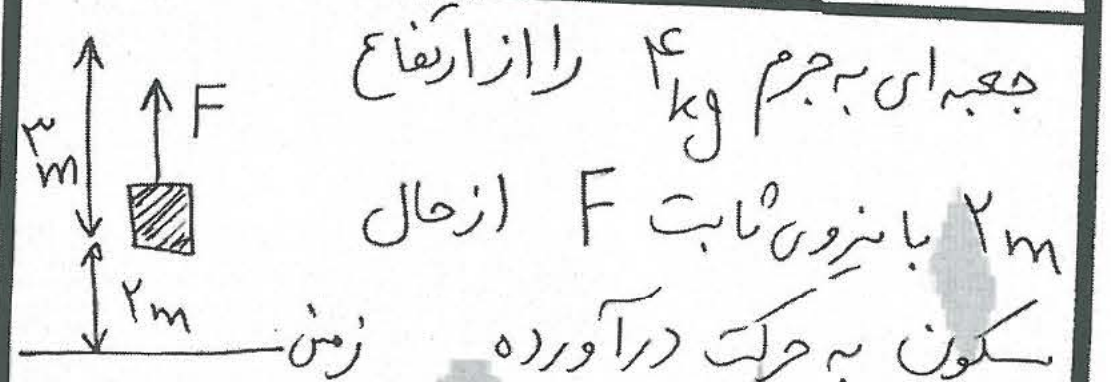 جعبه ای به جرم ۴kg را از ارتفاع
۲m با نیروی ثابت F از حال
سکون به حرکت درآورده
F
۳m
۲m
زمین